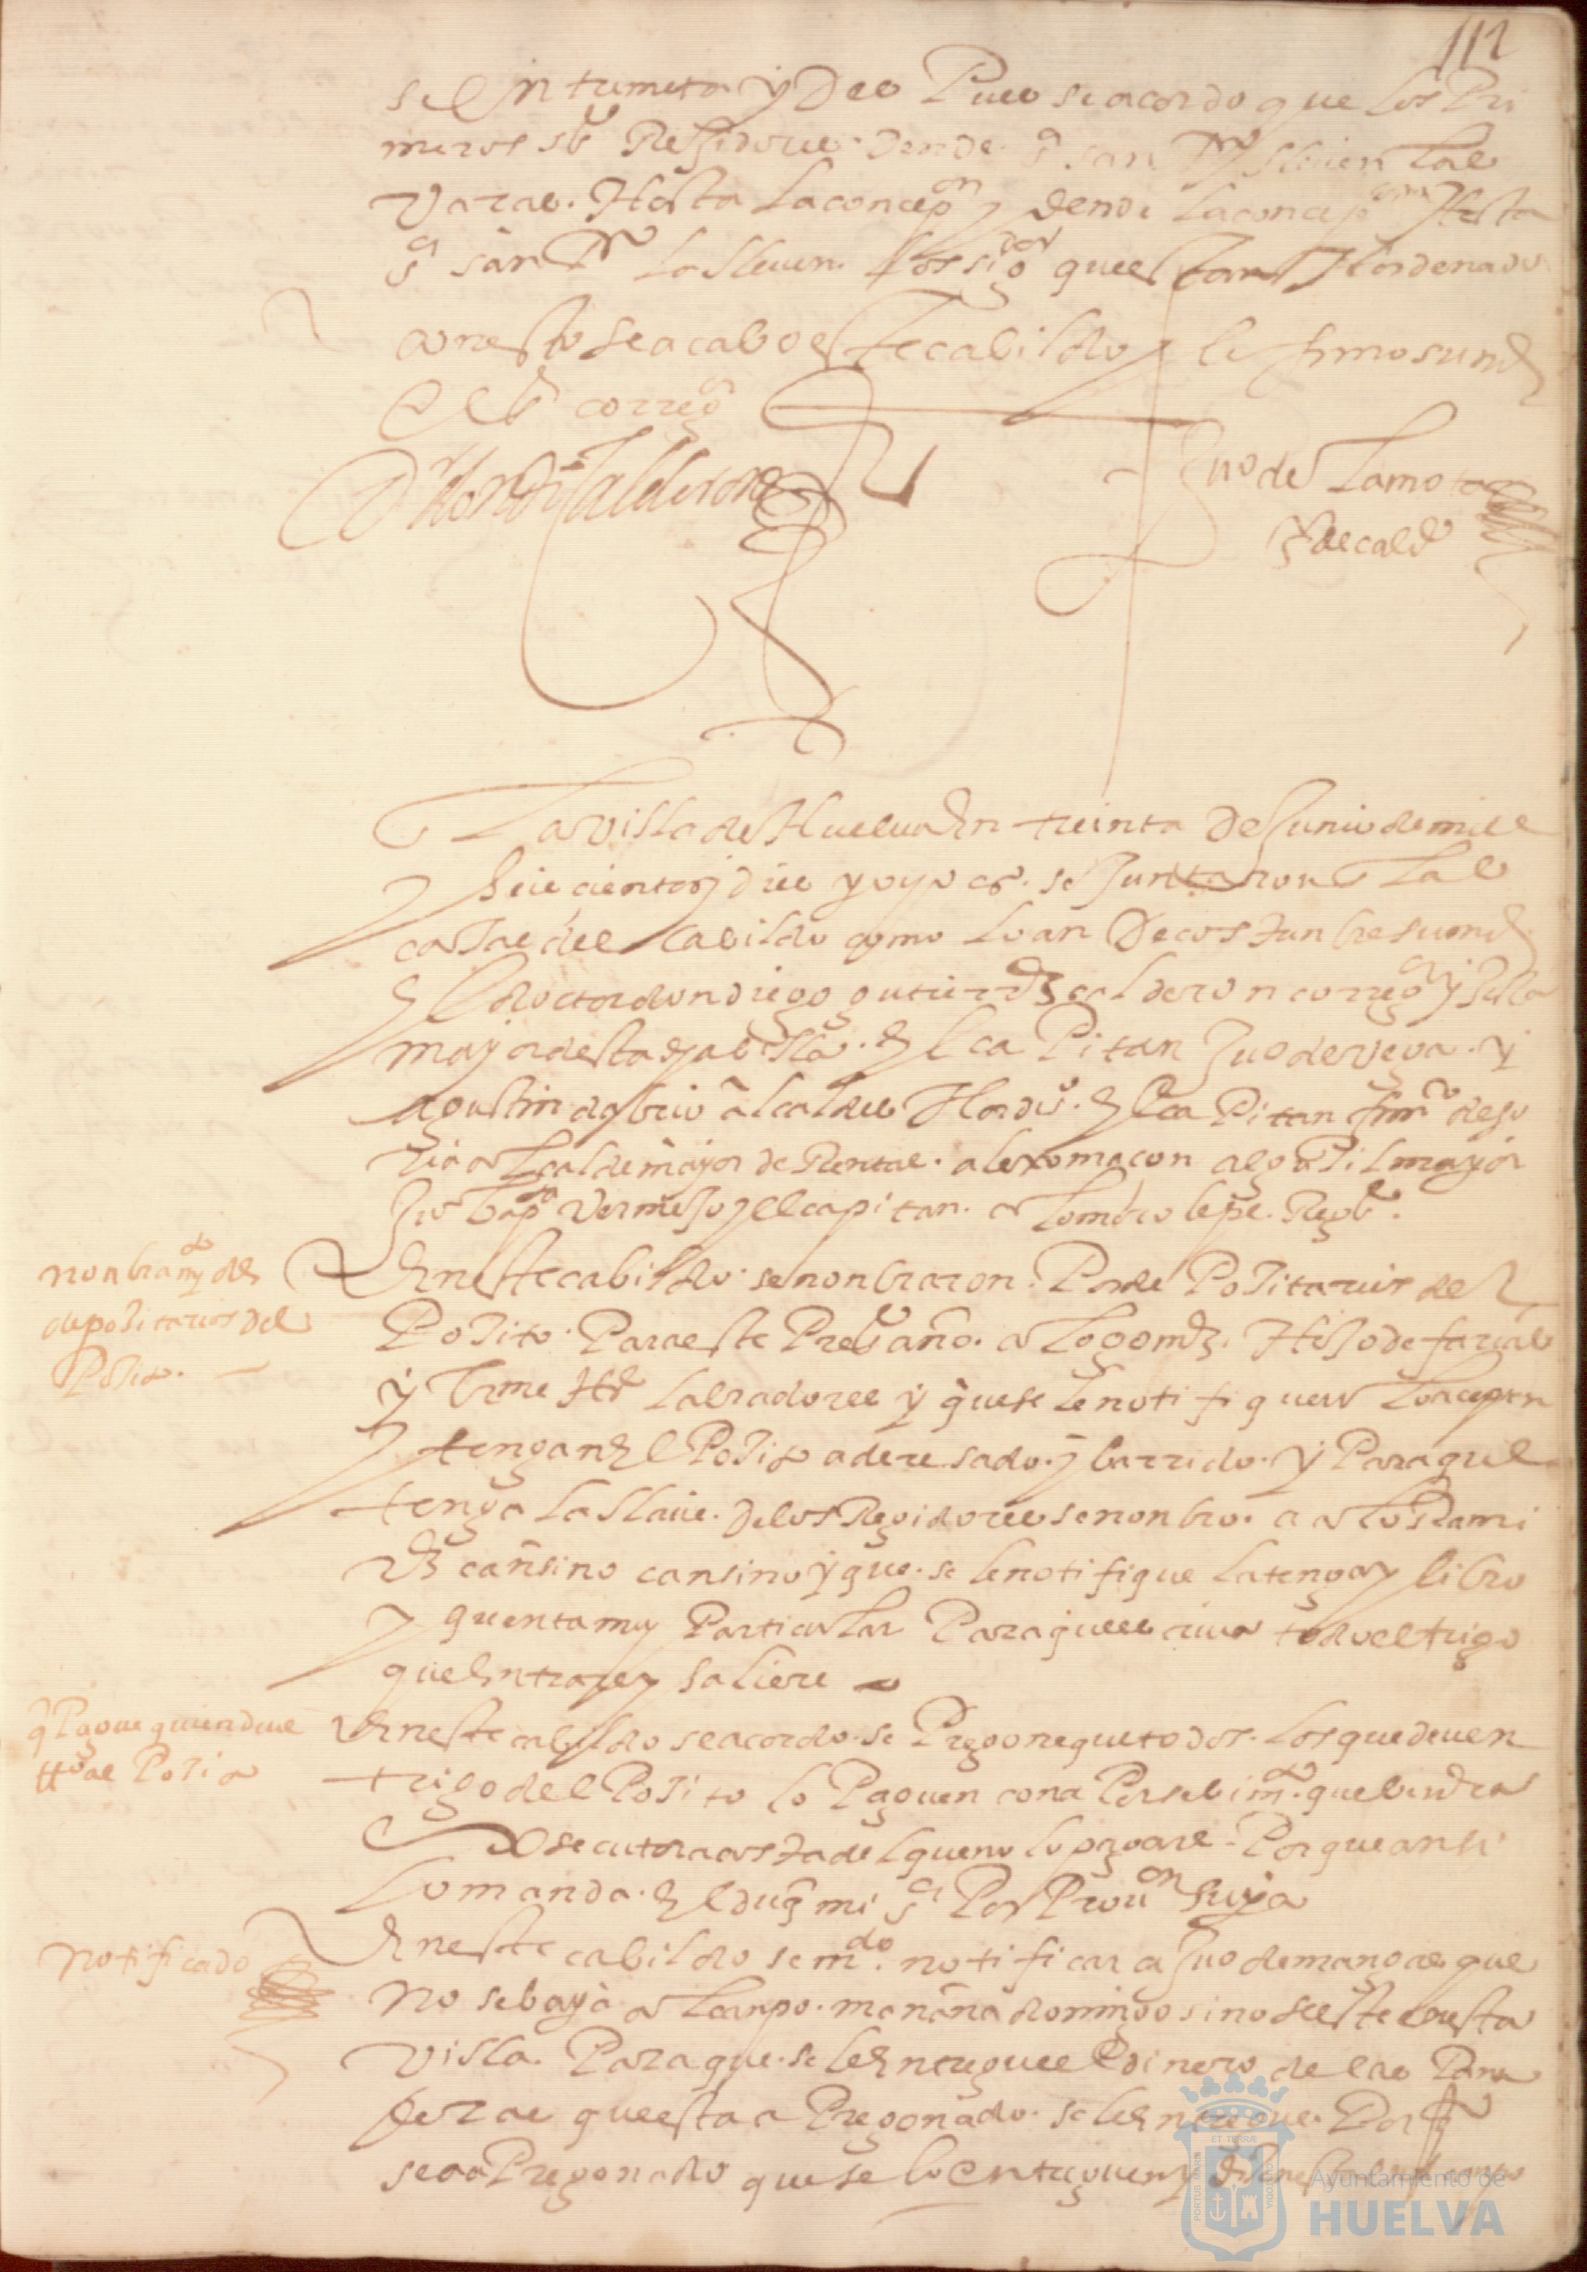 112
se yntrumeta y Des Pues se acordo que los Pri
meros Rejidores dende san lleuen las
Varas. Hasta la concepon y dende la concepon Hasta
sr san la lleuen los que estan Hordenado
con esto se acabo este cabildo y lo firmo su md
el corregor
Dor Don Di Calderon
Juo de Lamota
La villa de Huelua En treinta De Junio de mill
y seiscientos y diez y oyo as. se Juntaron En Las
casas del Cabildo como lo an De costunbre su md
El doctor don diego gutierrez calderon corregor y Justa
mayor desta dja billa. El ca Pitan Juo de vega. y
agustin de alcaldes Hordios. El ca Pitan de
alcalde mayor de Rentas. alguasil mayor
Juo bapta Vermejo y el capitan. alonso lepe. Regres.
nonbramyto de
depositarios Del
Posito.
En este cabildo se nonbraron. Por de Positarios del
Posito. Para este Prete año. a alo gomz. Hijo de farias
y labradores y que se le notifiquen lo acepten
y tengan El Posito aderesado. y barrido. y Para que
tenga la llaue. De los Regidores se nonbro. a alo Rami
rz cansino cansino y que. se le notifique la tenga y libro
y quenta muy Particular Para que escriua todo el trigo
que Entrare y saliere
q Pague quien deue
tto al Posito
En este cabildo se acordo. se Pregone que todos. los que deuen
trigo del Posito lo Paguen con a Persebimto. que bendra
Esecutor a costa del que no lo pagare. Porque ansi
lo manda. El duq mi sr Por Prouon Suya
notificado
En este cabildo se mdo. notificar a Juo de que
no se baya al canpo. mañana domingo sino se este en esta
villa. Para que. se le Entregue El dinero de las
que esta a Pregonado. se le Entregue. Por
se a a Pregonado que se lo entreguen y
Ayuntamiento de
HUELVA